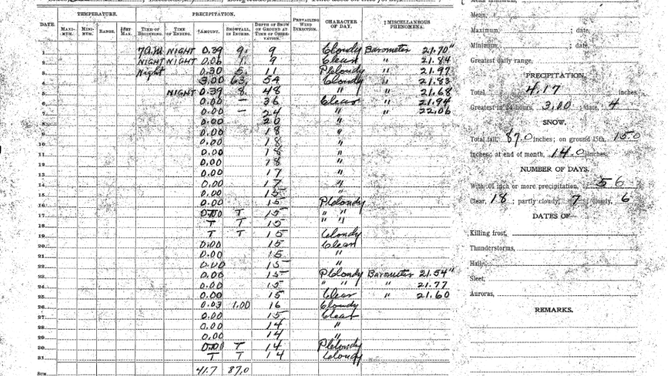 TEMPERATURE. PRECIPITATION.
DATE MAXI-MUM. MINI-MUM. RANGE. TIME OF BEGINNING. TIME OF ENDING. AMOUNT. SNOWFALL, IN INCHES. DEPTH OF SNOW ON GROUND AT TIME OF OBSERVATION. PREVAILING WIND DIRECTION. CHARACTER OF DAY. MISCELLANEOUS PHENOMENA.
7am NIGHT 0.39 9. 9 Cloudy Barometer 21.70"
NIGHT NIGHT 0.06 1. 9 Clear " 21.84
Night 0.30 5. 11 Pt Cloudy " 21.97
3.00 63. 54 Cloudy " 21.53
NIGHT 0.39 8. 48 " " 21.68
0.00 — 36 Clear " 21.94
0.00 — 24 " " 22.06
0.00 20 "
0.00 18 "
0.00 18 "
0.00 18 "
0.00 18 "
0.00 17 "
0.00 17 "
0.00 15 "
0.00 15 Pt Cloudy
0.00 T 15 " "
T T 15 " "
T T 15 Cloudy
0.00 15 Clear
0.00 15 "
0.00 15 "
0.00 15 Pt Cloudy Barometer 21.54"
0.00 15 " " " 21.77
0.00 15 Clear " 21.60
0.03 1.00 16 Cloudy
0.00 15 Clear
0.00 14 "
0.00 14 "
0.00 T 14 Pt Cloudy
T T 14 Cloudy
41.7 87.0
Mean,
Maximum, ; date,
Minimum, ; date,
Greatest daily range,
PRECIPITATION.
Total 4.17 inches
Greatest in 24 hours, 3.00 ; date, 4
SNOW.
Total fall, 87.0 inches; on ground 15th, 15.0
inches; at end of month, 14.0 inches.
NUMBER OF DAYS.
With .01 inch or more precipitation,
Clear, 18 ; partly cloudy, 7 ; cloudy, 6
DATES OF
Killing frost,
Thunderstorms,
Hail,
Sleet,
Auroras,
REMARKS.